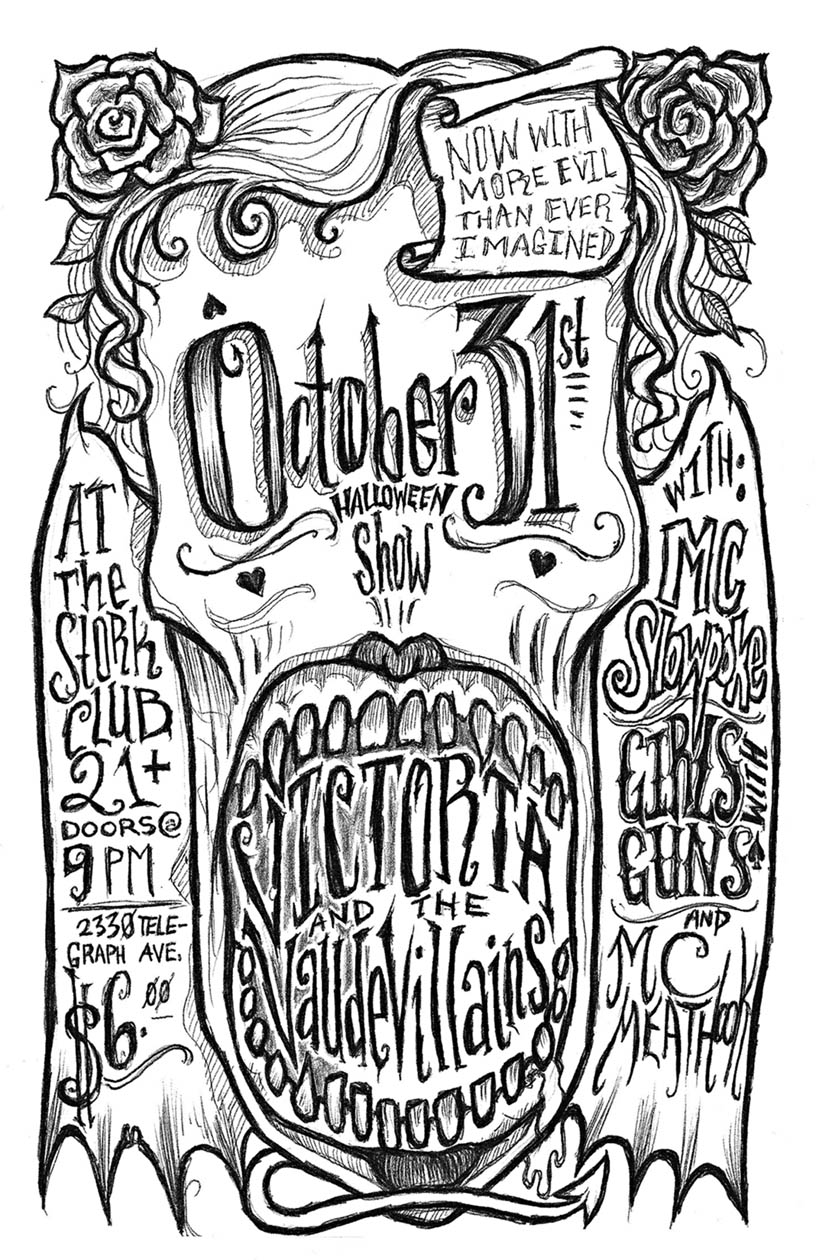 NOW WITH
MORE EVIL
THAN EVER
IMAGINED
October 31st
HALLOWEEN
Show
AT
The
STORK
CLUB
21+
DOORS@
9 PM
2330 TELE-
GRAPH AVE.
$6.00
VICTORIA
AND THE
VaudeVillains
WITH:
MC
Slowpoke
GIRLS
WITH
GUNS
AND
MC
MEATHOOK